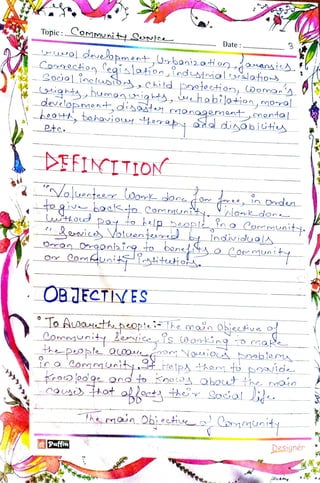 Topic: Community Service
Date: 3
rural development, Urbanization, forensics
Correction legislation, industrial relations
Social inclusions, child protection, Woman's
rights, human rights, rehabilation, moral
development, disaster management, mental
health, behaviour therapy and disabilities
etc.
DEFINITION
"Voluenteer Work done for free, in order
to give back to community. Work done
without pay to help people in a Community.
"Services Voluenteered by Individuals
or an organizing to benefits a Community
or Community Institutions.
OBJECTIVES
To Aware the people:- The main Objective of
Community Service is Working to make
the people aware from Various problems
in a Community. It Helps them to provide
knowledge and to knows about the main
causes that affects their Social life.
The main Objective of Community
Puffin
Designer